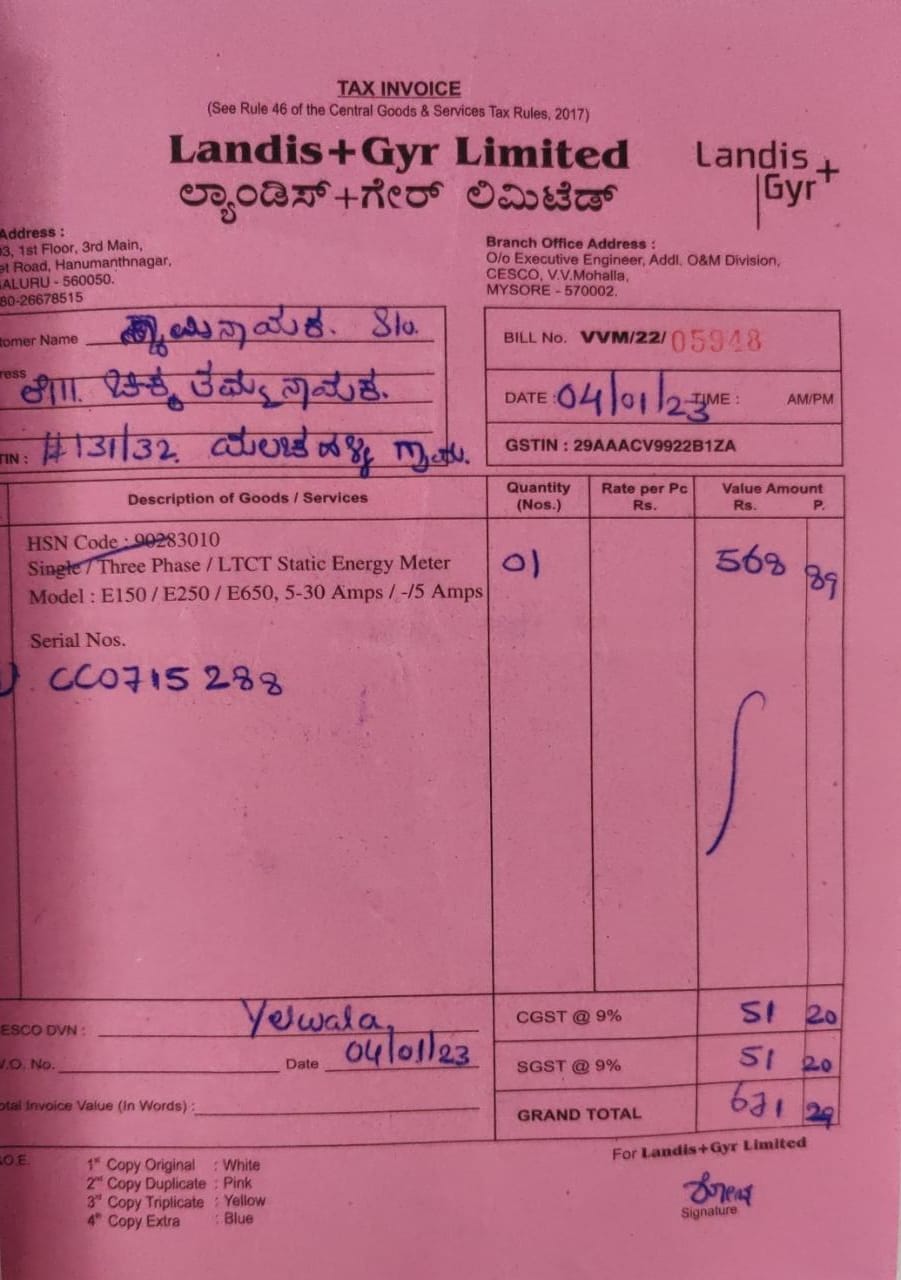 TAX INVOICE
(See Rule 46 of the Central Goods & Services Tax Rules, 2017)
Landis+Gyr Limited
ಲ್ಯಾಂಡಿಸ್+ಗೇರ್ ಲಿಮಿಟೆಡ್
Landis+
Gyr
Address :
3, 1st Floor, 3rd Main,
Road, Hanumanthnagar,
ALURU - 560050.
80-26678515
Branch Office Address :
O/o Executive Engineer, Addl. O&M Division,
CESCO, V.V.Mohalla,
MYSORE - 570002.
tomer Name ಸ್ವಾಮಿನಾಯಕ. S/o.
ress
ಚಿಕ್ಕ ತಮ್ಮನಾಯಕ.
TIN : #131/32 ಗ್ರಾಮ.
BILL No. VVM/22/ 05948
DATE : 04/01/23 TIME : AM/PM
GSTIN : 29AAACV9922B1ZA
Description of Goods / Services Quantity (Nos.) Rate per Pc Rs. Value Amount Rs. P.
HSN Code : 90283010
Single / Three Phase / LTCT Static Energy Meter 01 568 89
Model : E150 / E250 / E650, 5-30 Amps / -/5 Amps
Serial Nos.
CC0715288
ESCO DVN : Yelwala,
CGST @ 9% 51 20
.O. No. Date 04/01/23
SGST @ 9% 51 20
otal Invoice Value (In Words) :
GRAND TOTAL 671 29
.O.E.
For Landis+Gyr Limited
1st Copy Original : White
2nd Copy Duplicate : Pink
3rd Copy Triplicate : Yellow
4th Copy Extra : Blue
Signature